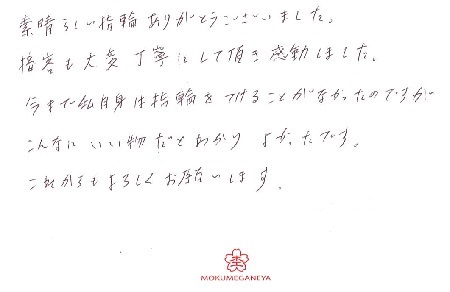 素晴らしい指輪ありがとうございました。
接客も大変丁寧にして頂き感動しました。
今まで私自身は指輪をつけることがなかったのですが
こんなにいい物だとわかり よかったです。
これからもよろしくお願いします。
MOKUMEGANEYA